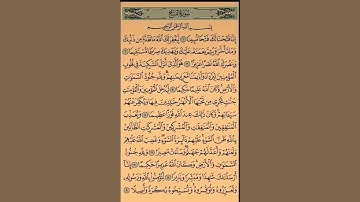 سُورَةُ الفَتْحِ
بِسْمِ اللَّهِ الرَّحْمَٰنِ الرَّحِيمِ
إِنَّا فَتَحْنَا لَكَ فَتْحًا مُّبِينًا ١ لِّيَغْفِرَ لَكَ اللَّهُ مَا تَقَدَّمَ مِن ذَنبِكَ
وَمَا تَأَخَّرَ وَيُتِمَّ نِعْمَتَهُ عَلَيْكَ وَيَهْدِيَكَ صِرَاطًا مُّسْتَقِيمًا ٢
وَيَنصُرَكَ اللَّهُ نَصْرًا عَزِيزًا ٣ هُوَ الَّذِي أَنزَلَ السَّكِينَةَ فِي قُلُوبِ
الْمُؤْمِنِينَ لِيَزْدَادُوا إِيمَانًا مَّعَ إِيمَانِهِمْ وَلِلَّهِ جُنُودُ السَّمَٰوَٰتِ
وَالْأَرْضِ وَكَانَ اللَّهُ عَلِيمًا حَكِيمًا ٤ لِّيُدْخِلَ الْمُؤْمِنِينَ وَالْمُؤْمِنَٰتِ
جَنَّٰتٍ تَجْرِي مِن تَحْتِهَا الْأَنْهَٰرُ خَٰلِدِينَ فِيهَا وَيُكَفِّرَ عَنْهُمْ
سَيِّـَٔاتِهِمْ وَكَانَ ذَٰلِكَ عِندَ اللَّهِ فَوْزًا عَظِيمًا ٥ وَيُعَذِّبَ
الْمُنَٰفِقِينَ وَالْمُنَٰفِقَٰتِ وَالْمُشْرِكِينَ وَالْمُشْرِكَٰتِ الظَّانِّينَ
بِاللَّهِ ظَنَّ السَّوْءِ عَلَيْهِمْ دَائِرَةُ السَّوْءِ وَغَضِبَ اللَّهُ عَلَيْهِمْ
وَلَعَنَهُمْ وَأَعَدَّ لَهُمْ جَهَنَّمَ وَسَاءَتْ مَصِيرًا ٦ وَلِلَّهِ جُنُودُ
السَّمَٰوَٰتِ وَالْأَرْضِ وَكَانَ اللَّهُ عَزِيزًا حَكِيمًا ٧ إِنَّا
أَرْسَلْنَٰكَ شَٰهِدًا وَمُبَشِّرًا وَنَذِيرًا ٨ لِّتُؤْمِنُوا بِاللَّهِ وَرَسُولِهِ
وَتُعَزِّرُوهُ وَتُوَقِّرُوهُ وَتُسَبِّحُوهُ بُكْرَةً وَأَصِيلًا ٩